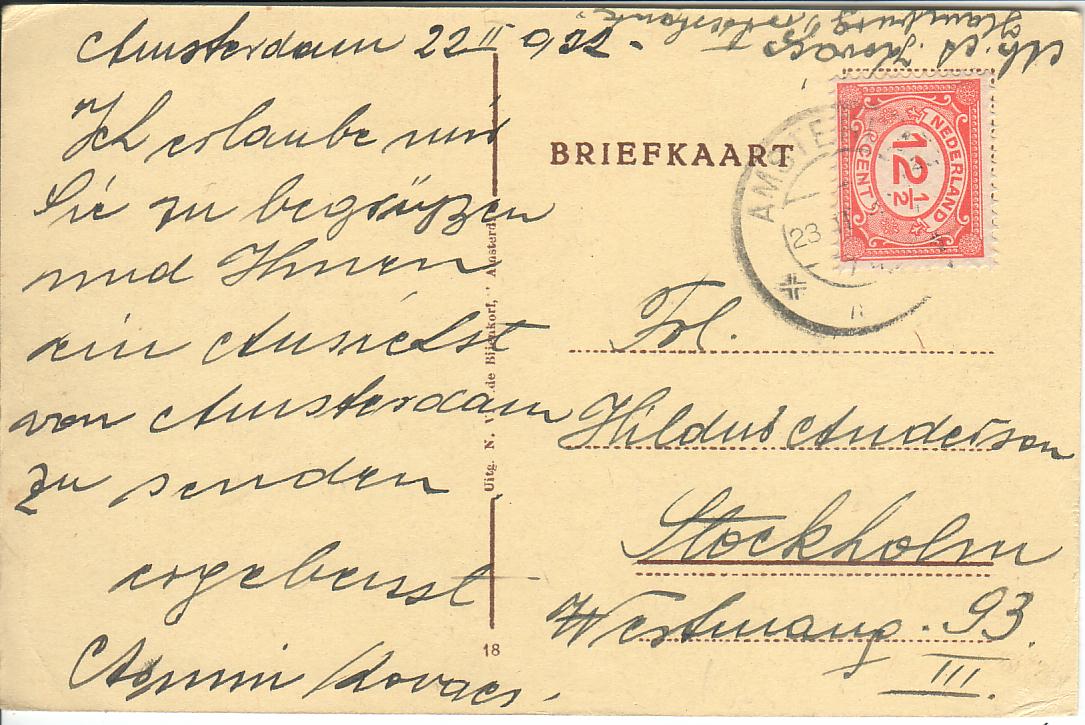 Amsterdam 22 II 922.
Ich erlaube mir
Sie zu begrüßen
und Ihnen
ein Ansicht
von Amsterdam
zu senden
ergebenst
Kovacs.
Uitg. N. V. de Bijenkorf, Amsterd
18
Kovacs
Hamburg
BRIEFKAART
NEDERLAND
12½
CENT
AMSTE
23 II
Frl.
Anderson
Stockholm
Westmang. 93
III.